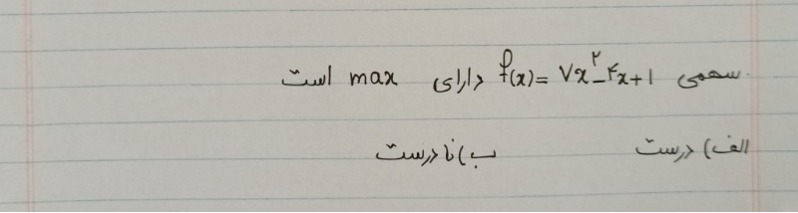 سهمی f(x)= ۷x^۲-۴x+۱ دارای max است
الف) درست ب) نادرست